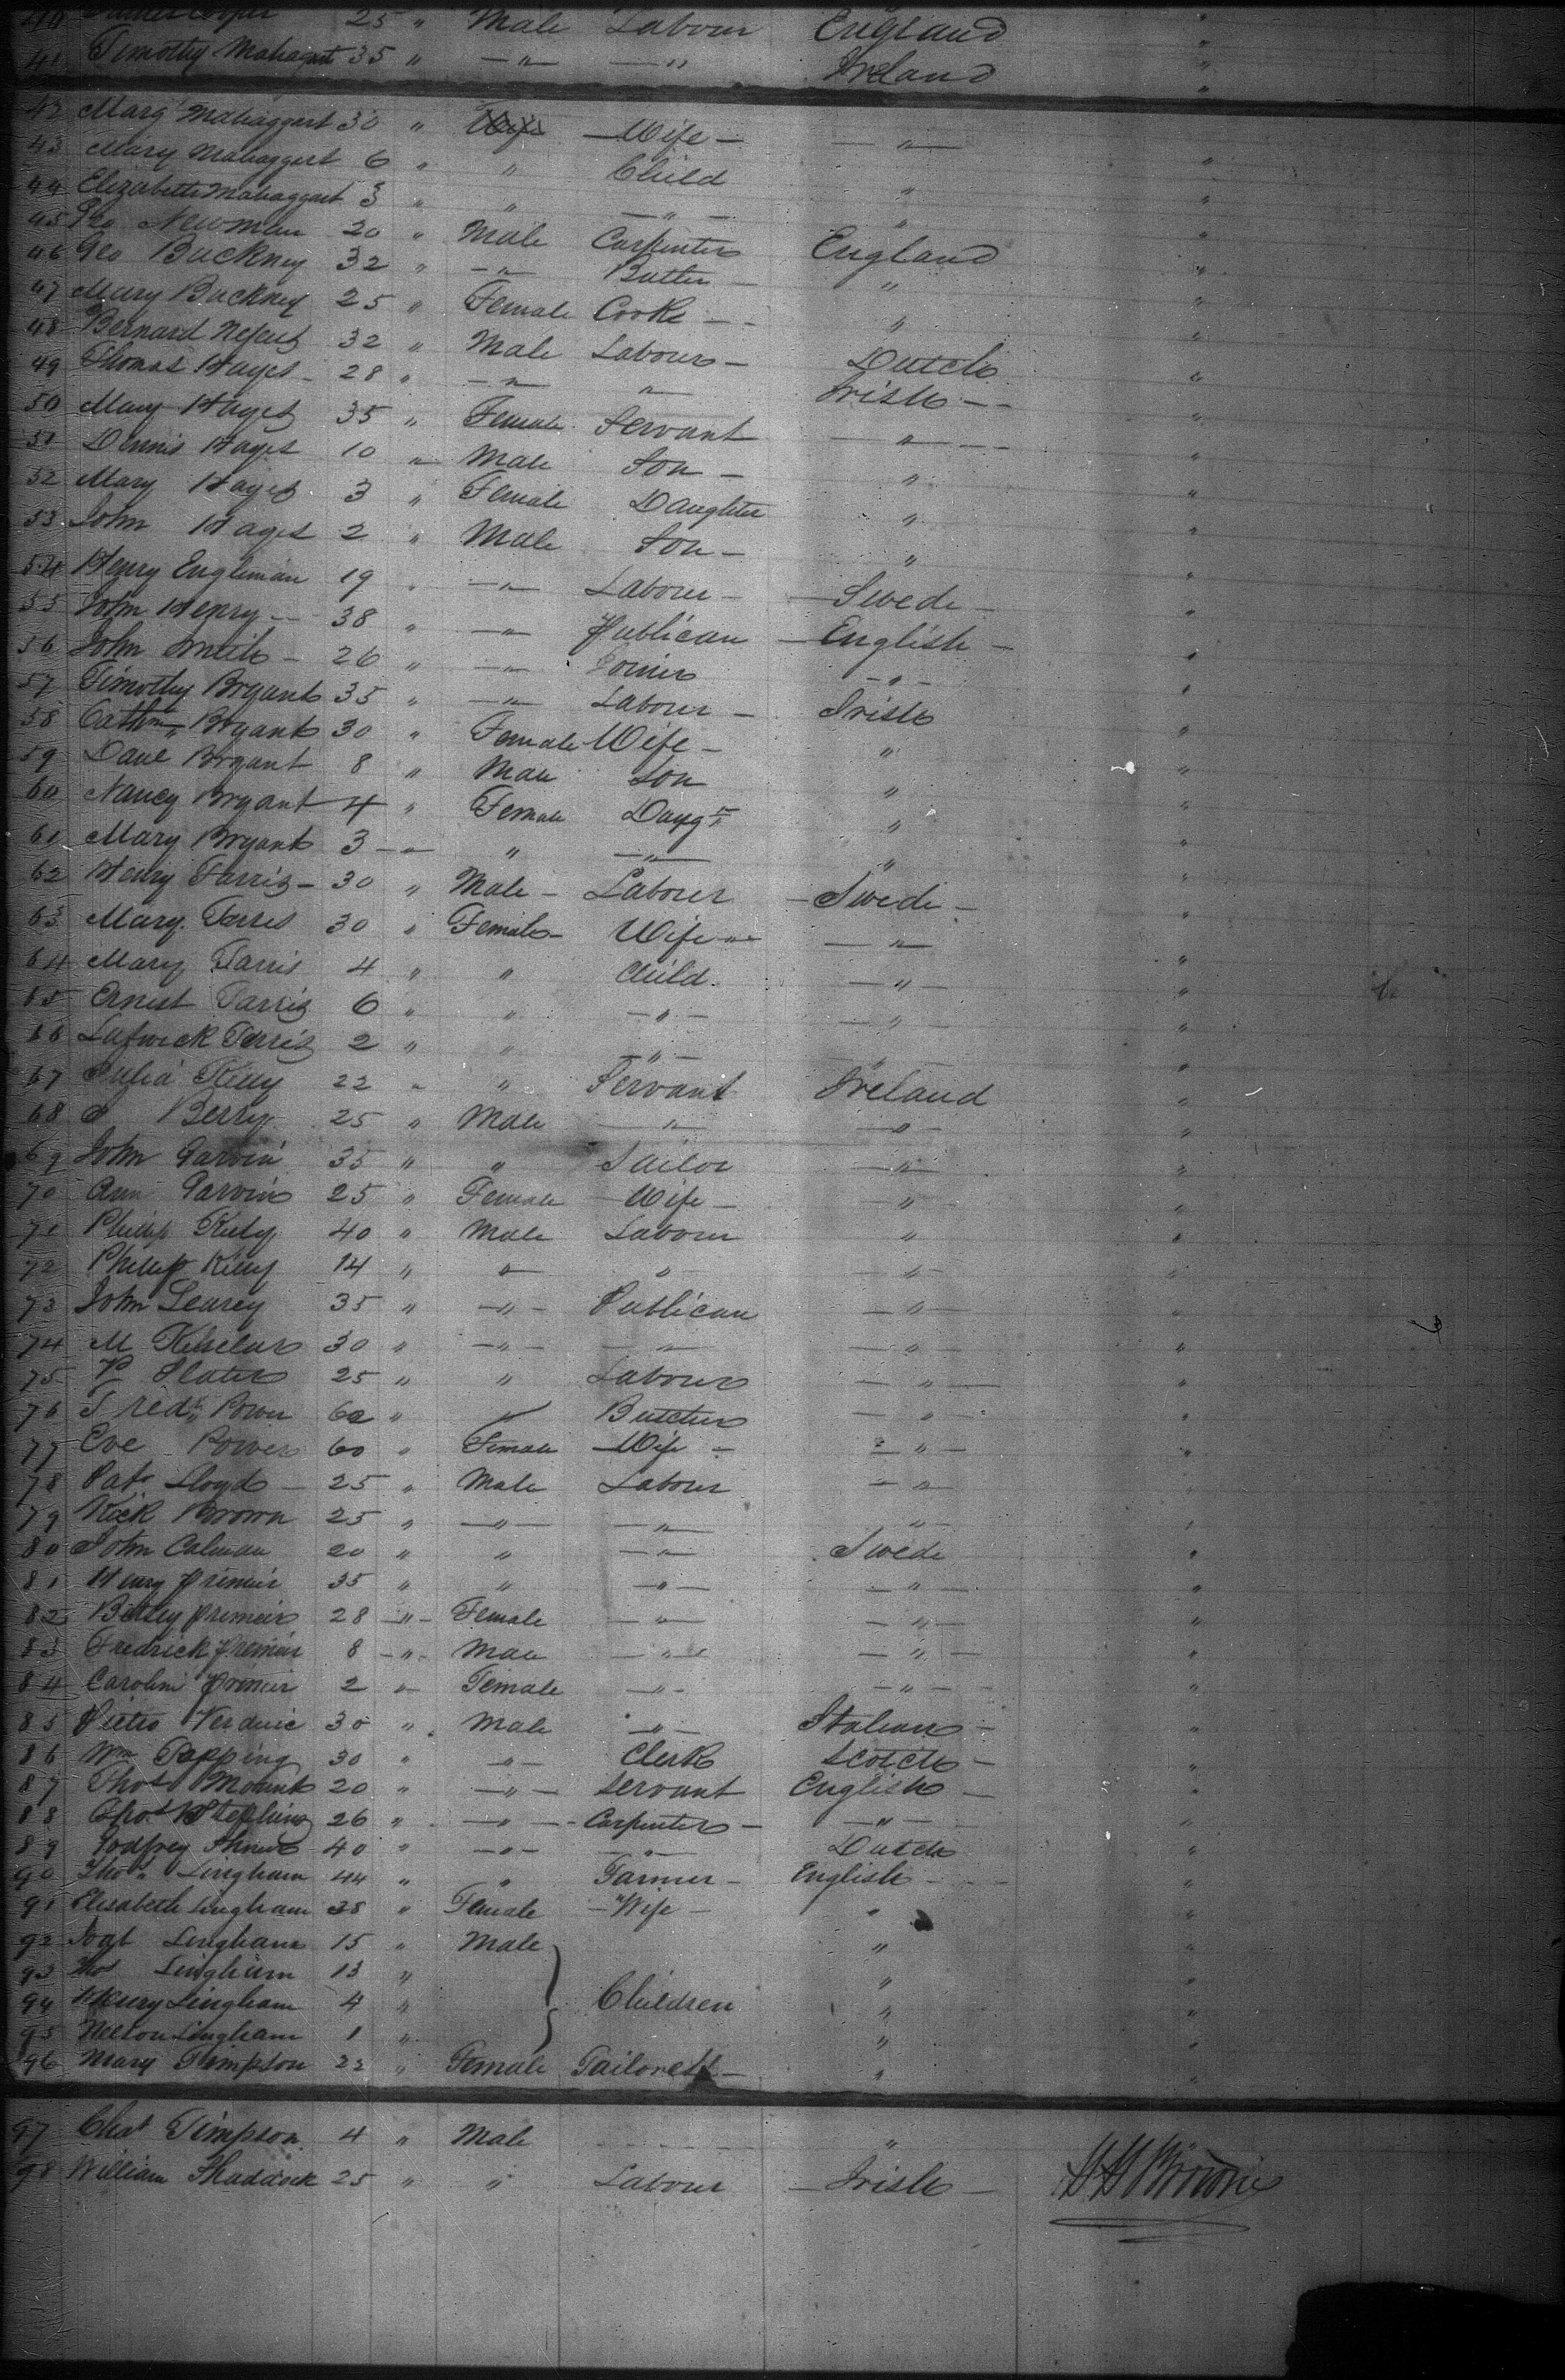 25 " Male Labour England "
41 Timothy Mahagart 35 " — " — — " Ireland "
42 Marg Mahaggart 30 " Wife — Wife — — " — "
43 Mary Mahaggart 6 " " Child " "
44 Elizabeth Mahaggart 3 " " — " — " "
45 Geo Newman 20 " Male Carpenter England "
46 Geo Buckney 32 " — " Butler — " "
47 Mary Buckney 25 " Female Cook — " "
48 Bernard 32 " Male Labour — Dutch "
49 Thomas Hayes — 28 " — " — " Irish — "
50 Mary Hayes 35 " Female Servant — " — "
51 Dennis Hayes 10 " Male Son — " "
52 Mary Hayes 3 " Female Daughter " "
53 John Hayes 2 " Male Son — " "
54 Henry Engleman 19 " — " — Labour — — Swede — "
55 John Henry — 38 " — " Publican — English — "
56 John Smith — 26 " — " Joiner — " — "
57 Timothy Bryant 35 " — " Labour — Irish "
58 Cathn Bryant 30 " Female Wife — " "
59 Dave Bryant 8 " Male Son " "
60 Nancy Bryant 4 " Female Daugr " "
61 Mary Bryant 3 — " — " — " "
62 Henry Farris — 30 " Male — Labour — Swede — "
63 Mary Farris 30 " Female — Wife — — " — "
64 Mary Farris 4 " " Child — " — "
65 Ernest Farris 6 " " — " — — " — "
66 Farris 2 " " — " — " "
67 Julia Kelly 22 " " Servant Ireland "
68 J Berry 25 " Male — " — — " — "
69 John Garvin 35 " " Sailor — " — "
70 Ann Garvin 25 " Female — Wife — — " — "
71 Phillip Kely 40 " Male Labour " "
72 Phillip Kelly 14 " " " — " — "
73 John Learey 35 " — " — Publican — " — "
74 M 30 " — " — — " — — " — "
75 P Slater 25 " " Labour — " — "
76 Fredk Power 60 " " Butcher — " — "
77 Eve Power 60 " Female — Wife — — " — "
78 Patk Lloyd — 25 " Male Labour — " "
79 Rick Brown 25 " — " — — " — " "
80 John Calman 20 " " — " — Swede "
81 Henry Premier 35 " " — " — — " — "
82 Betsy Premier 28 — " — Female — " — — " — "
83 Fredrick Premier 8 — " — Male — " — — " — "
84 Caroline Premier 2 " Female — " — — " — "
85 Pietro Verduic 30 " Male — " — Italian — "
86 Wm Topping 30 " — " — Clerk Scotch — "
87 Thos Mount 20 " — " — Servant English — "
88 Stephens 26 " — " — Carpenter — — " — "
89 Godfrey 40 " — " — — " — Dutch "
90 Thos Lingham 44 " " Farmer — English — "
91 Elisabeth Lingham 38 " Female — Wife — " "
92 Lingham 15 " Male " "
93 Thos Lingham 13 " " "
94 Henry Lingham 4 " Children " "
95 Nelson Lingham 1 " " "
96 Mary Timpson 22 " Female Tailoress — " "
97 Chas Timpson 4 " Male "
98 William Shaddock 25 " " Labour — Irish —